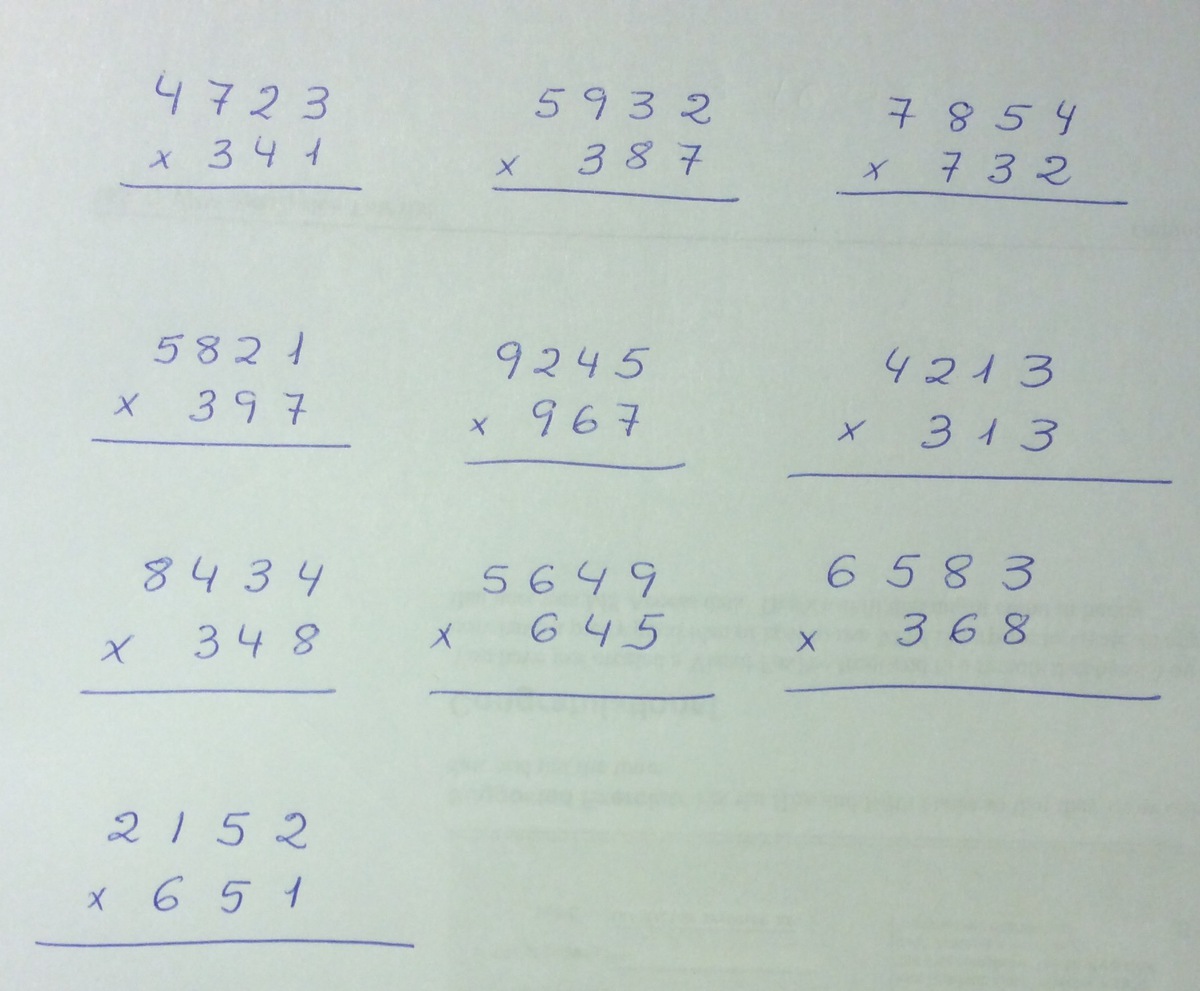 4723 5932 7854
x 341 x 387 x 732
5821 9245 4213
x 397 x 967 x 313
8434 5649 6583
x 348 x 645 x 368
2152
x 651